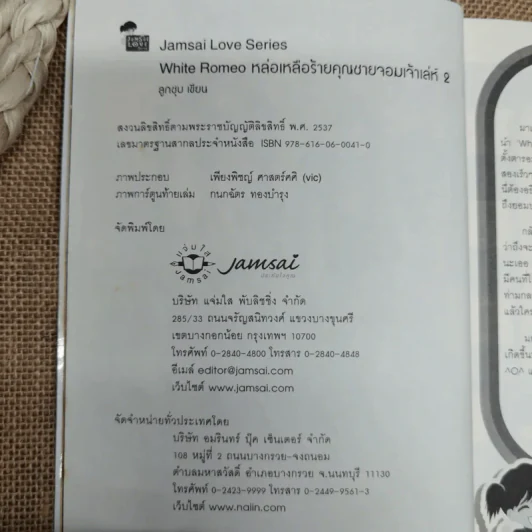 Jamsai Love Series
White Romeo หล่อเหลือร้ายคุณชายจอมเจ้าเล่ห์ 2
ลูกชุบ เขียน
สงวนลิขสิทธิ์ตามพระราชบัญญัติลิขสิทธิ์ พ.ศ. 2537
เลขมาตรฐานสากลประจำหนังสือ ISBN 978-616-06-0041-0
ภาพประกอบ เพียงพิชญ์ ศาสตร์ศศิ (vic)
ภาพการ์ตูนท้ายเล่ม กนกฉัตร ทองบำรุง
จัดพิมพ์โดย
แจ่มใส Jamsai jamsai
บริษัท แจ่มใส พับลิชชิ่ง จำกัด
285/33 ถนนจรัญสนิทวงศ์ แขวงบางขุนศรี
เขตบางกอกน้อย กรุงเทพฯ 10700
โทรศัพท์ 0-2840-4800 โทรสาร 0-2840-4848
อีเมล์ editor@jamsai.com
เว็บไซต์ www.jamsai.com
จัดจำหน่ายทั่วประเทศโดย
บริษัท อมรินทร์ บุ๊ค เซ็นเตอร์ จำกัด
108 หมู่ที่ 2 ถนนบางกรวย-จงถนอม
ตำบลมหาสวัสดิ์ อำเภอบางกรวย จ.นนทบุรี 11130
โทรศัพท์ 0-2423-9999 โทรสาร 0-2449-9561-3
เว็บไซต์ www.naiin.com